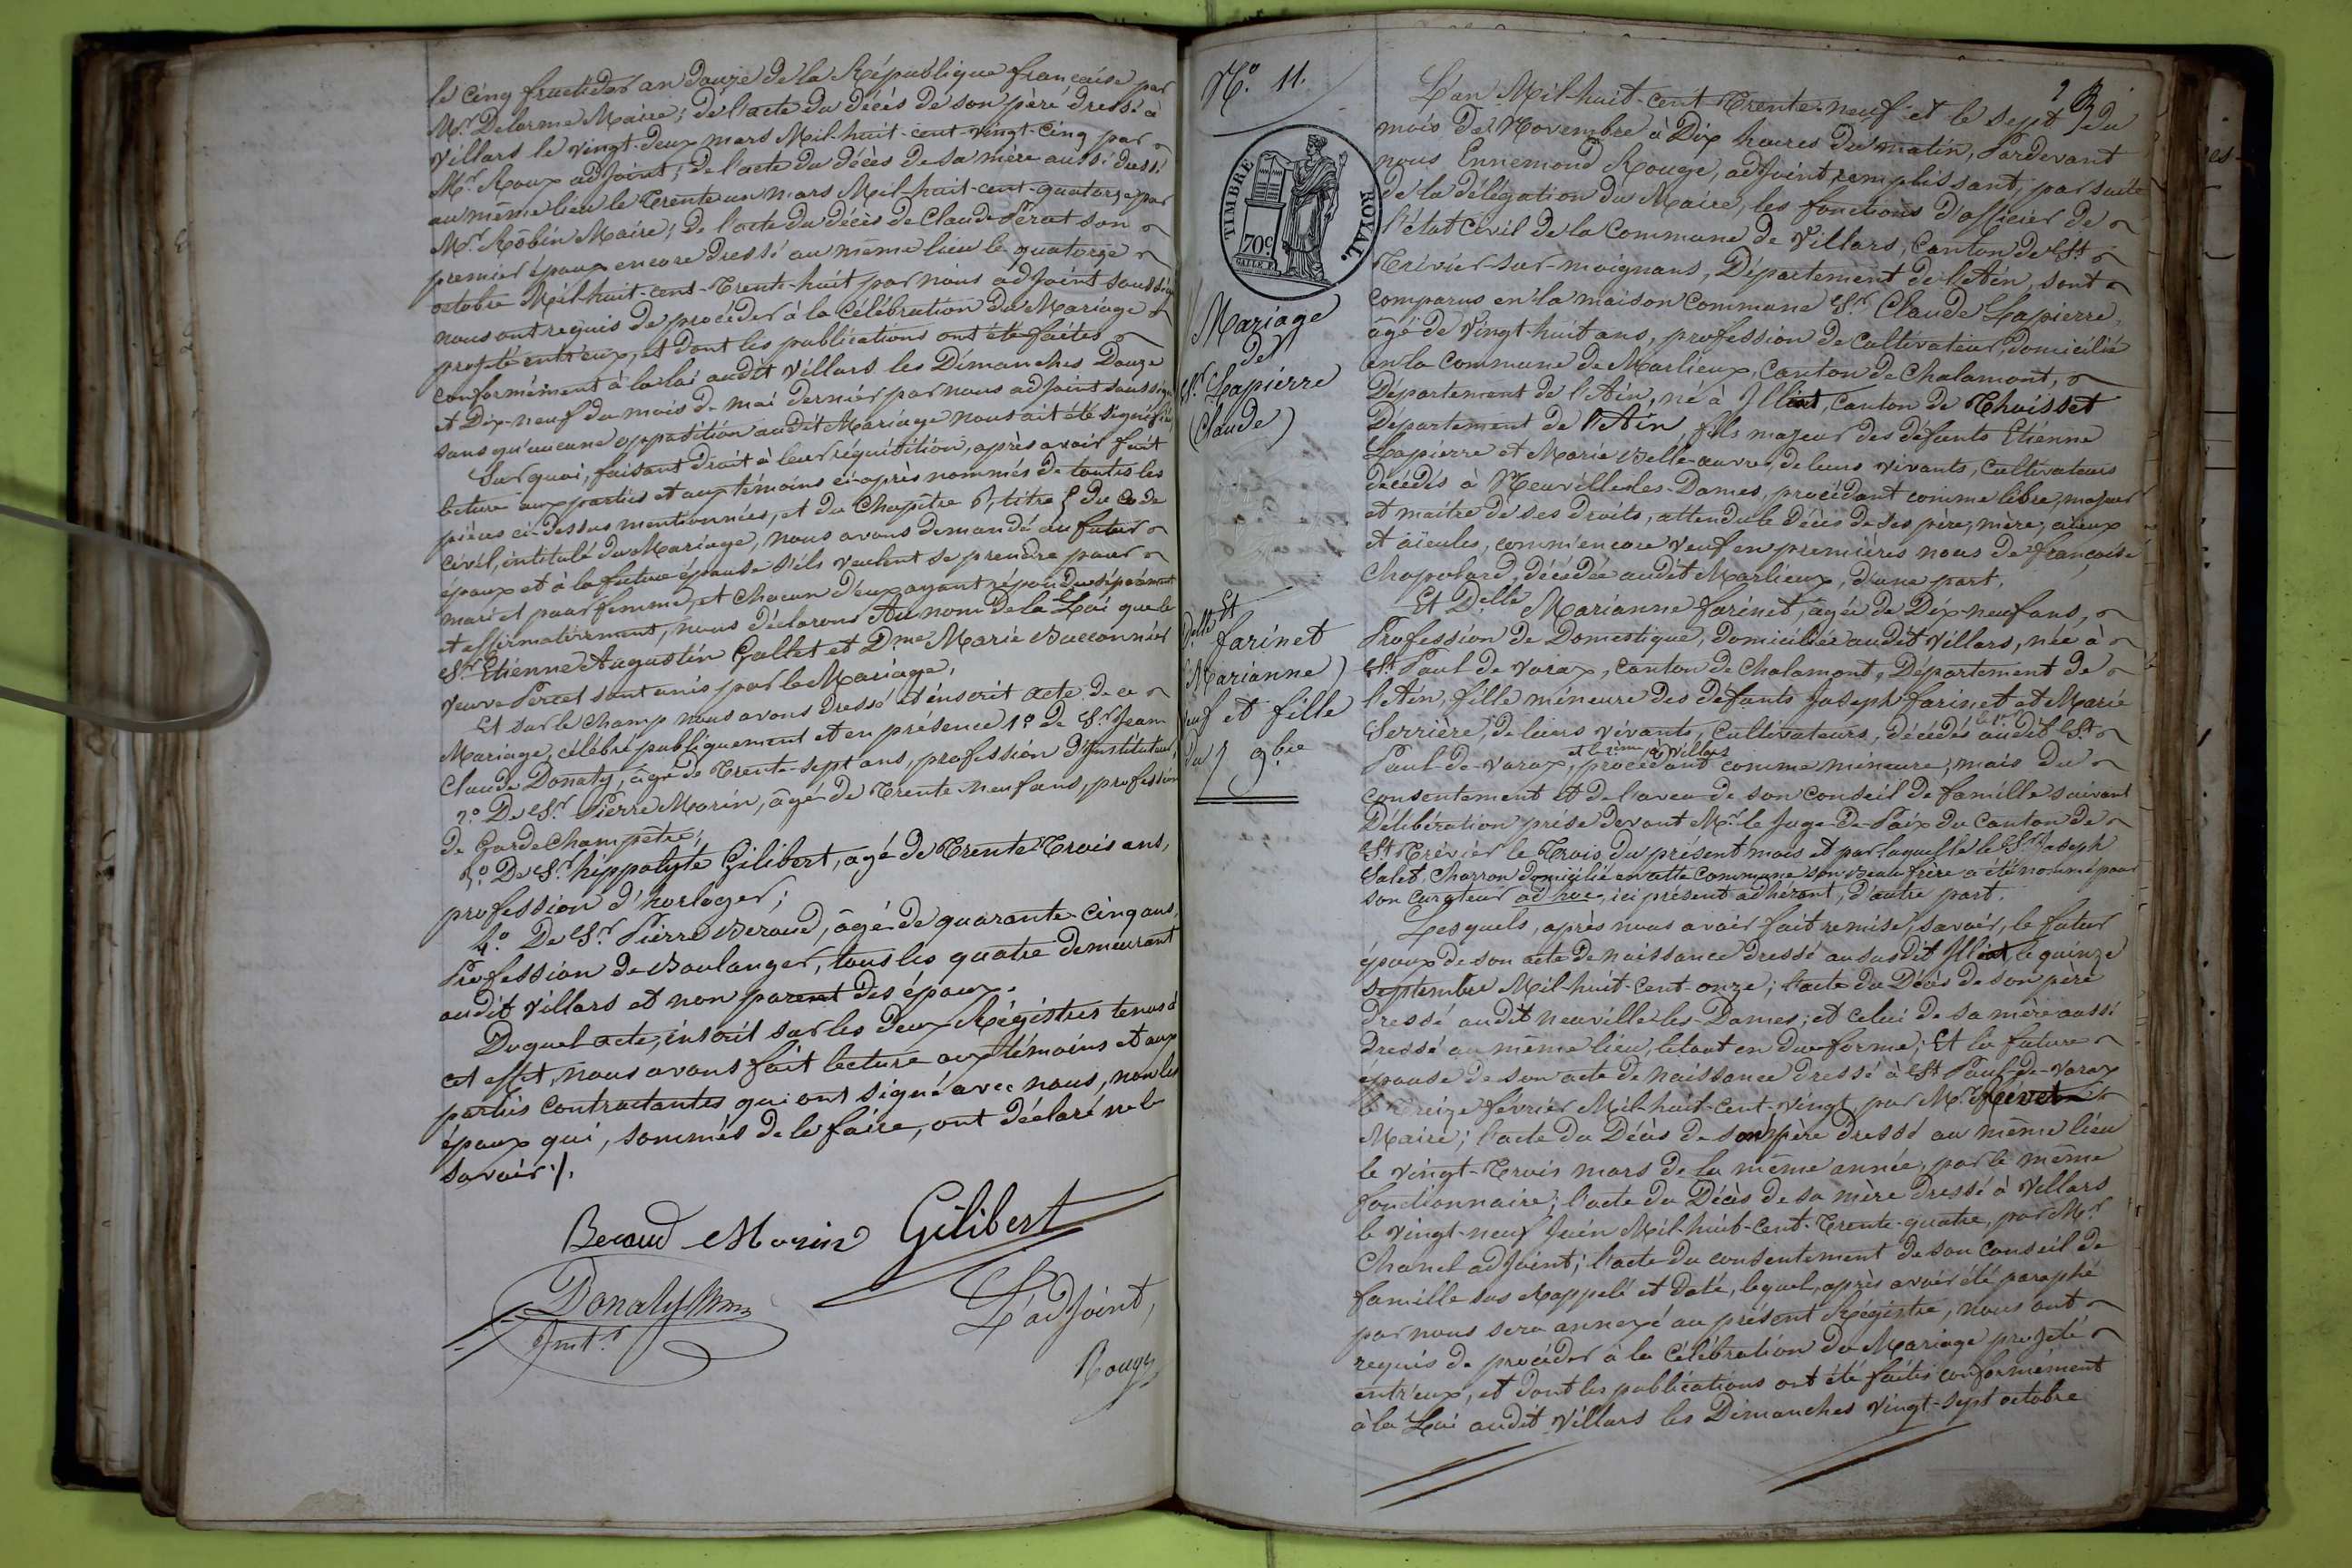 le cinq fructidor an douze de la République française par
Mr. Delorme Maire; de l'acte du décès de son père dressé à
Villars le vingt-deux mars Mil-huit-cent-vingt-cinq par
Mr. Roux adjoint; de l'acte du décès de sa mère aussi dressé
au même lieu le trente un mars Mil-huit-cent-quatorze par
Mr. Robin Maire; de l'acte du décès de Claude Percet son
premier époux encore dressé au même lieu le quatorze
octobre Mil-huit-cent-trente-huit par nous adjoint soussigné
nous ont requis de procéder à la célébration du Mariage
projeté entr'eux, et dont les publications ont été faites
conformément à la loi audit Villars les Dimanches Douze
et Dix-neuf du mois de mai dernier par nous adjoint soussigné
sans qu'aucune opposition audit Mariage nous ait été signifiée
Sur quoi, faisant droit à leur réquisition, après avoir fait
lecture aux parties et aux témoins ci-après nommés de toutes les
pièces ci-dessus mentionnées, et du Chapitre 6, titre 5 du Code
civil, intitulé du Mariage, nous avons demandé au futur
époux et à la future épouse s'ils veulent se prendre pour
mari et pour femme, et chacun d'eux ayant répondu séparément
et affirmativement, nous déclarons Au nom de la Loi que le
Sr. Etienne Augustin Gallet et Dme Marie Baconnier
veuve Percet sont unis par le Mariage.
Et sur le champ nous avons dressé et inscrit acte de ce
Mariage, célébré publiquement et en présence 1º de Sr. Jean
Claude Donaty, âgé de Trente-sept ans, profession d'Instituteur,
2º De Sr. Pierre Morin, âgé de Trente-neuf ans, profession
de Garde champêtre;
3º De Sr. hippolyte Gilibert, agé de Trente-Trois ans,
profession d'horloger;
4º De Sr. Pierre Beraud, âgé de quarante-cinq ans,
Profession de Boulanger, tous les quatre demeurant
audit Villars et non parent des époux.
Duquel acte, inscrit sur les deux Régistres tenus à
cet effet, nous avons fait lecture aux témoins et aux
parties contractantes qui ont signé avec nous, non les
époux qui, sommés de le faire, ont déclaré ne le
savoir ./.
Beraud Morin Gilibert
Donaty
Instr.
L'adjoint,
Rouge
Nº 11.
TIMBRE ROYAL.
70c
Mariage
de
Sr. Lapierre
(Claude)
Et
Delle farinet
(Marianne)
veuf et fille
du 7 9bre
L'an Mil-huit-cent Trente-neuf et le sept du
mois de Novembre à Dix heures du matin, Pardevant
nous Ennemond Rouge, adjoint, remplissant, par suite
de la délégation du Maire, les fonctions d'officier de
l'état civil de la Commune de Villars, Canton de St.
Trivier-sur-moignans, Département de l'Ain, sont
comparus en la maison commune Sr. Claude Lapierre,
âgé de Vingt-huit ans, profession de Cultivateur, domicilié
en la commune de Marlieux, Canton de Chalamont,
Département de l'Ain, né à Illiat, Canton de Thoissei
Département de l'Ain, fils majeur des défunts Etienne
Lapierre et Marie Belle-auvre, de leurs vivants, Cultivateurs
décédés à Neuville-les-Dames, procédant comme libre, majeur
et maître de ses droits, attendu le décès de ses père, mère, aïeux
et aïeules, comm'encore veuf en premières noces de françoise
Chapolard, décédée audit Marlieux, d'une part.
Et Delle Marianne farinet, agée de Dix-neuf ans,
Profession de Domestique, domiciliée audit Villars, née à
St. Paul de Varax, canton de Chalamont, Département de
l'Ain, fille mineure des défunts Joseph farinet et Marie
Serrière, de leurs vivants, Cultivateurs, décédés le 1er audit St.
Paul-de-Varax, et la 2ème à Villars procédant comme mineure, mais du
consentement et de l'aveu de son conseil de famille suivant
Délibération prise devant Mr. le Juge-de-Paix du Canton de
St. Trivier le Trois du présent mois et par laquelle le Sr. Joseph
Salet, Charron domicilié en cette commune son Beau frère a été nommé pour
son curateur ad hoc, ici présent adhérant, d'autre part.
Lesquels, après nous avoir fait remise, savoir, le futur
époux de son acte de naissance dressé au susdit Illiat le quinze
septembre Mil-huit-cent-onze; l'acte du Décès de son père
dressé audit neuville-les-Dames; et celui de sa mère aussi
dressé au même lieu, le tout en due forme; Et la future
épouse de son acte de naissance dressé à St. Paul-de-Varax
le Treize février Mil-huit-cent-vingt par Mr. Nivet
Maire; l'acte du Décès de son père dressé au même lieu
le vingt-Trois mars de la même année, par le même
fonctionnaire; l'acte du Décès de sa mère dressé à Villars
le vingt-neuf Juin Mil-huit-cent-Trente-quatre, par Mr.
Chanel adjoint; l'acte du consentement de son conseil de
famille sus rappelé et daté, lequel, après avoir été paraphé
par nous sera annexé au présent Registre, nous ont
requis de procéder à la Célébration du Mariage projeté
entr'eux, et dont les publications ont été faites conformément
à la Loi audit Villars les Dimanches vingt-sept octobre